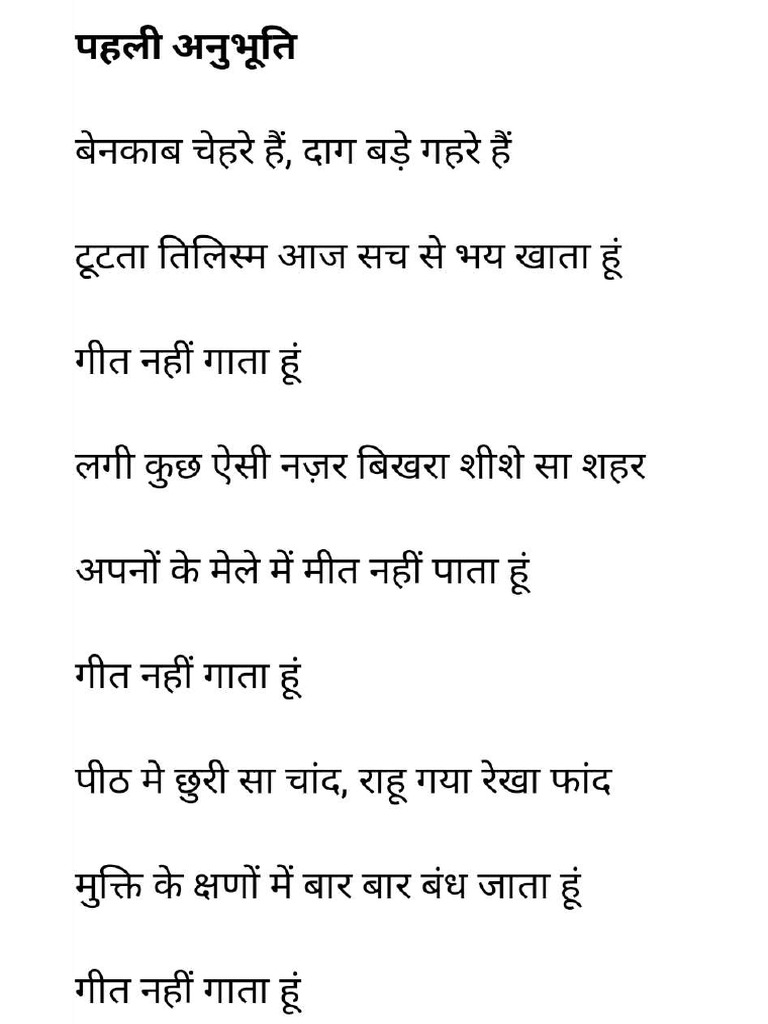 पहली अनुभूति
बेनकाब चेहरे हैं, दाग बड़े गहरे हैं
टूटता तिलिस्म आज सच से भय खाता हूं
गीत नहीं गाता हूं
लगी कुछ ऐसी नज़र बिखरा शीशे सा शहर
अपनों के मेले में मीत नहीं पाता हूं
गीत नहीं गाता हूं
पीठ मे छुरी सा चांद, राहू गया रेखा फांद
मुक्ति के क्षणों में बार बार बंध जाता हूं
गीत नहीं गाता हूं